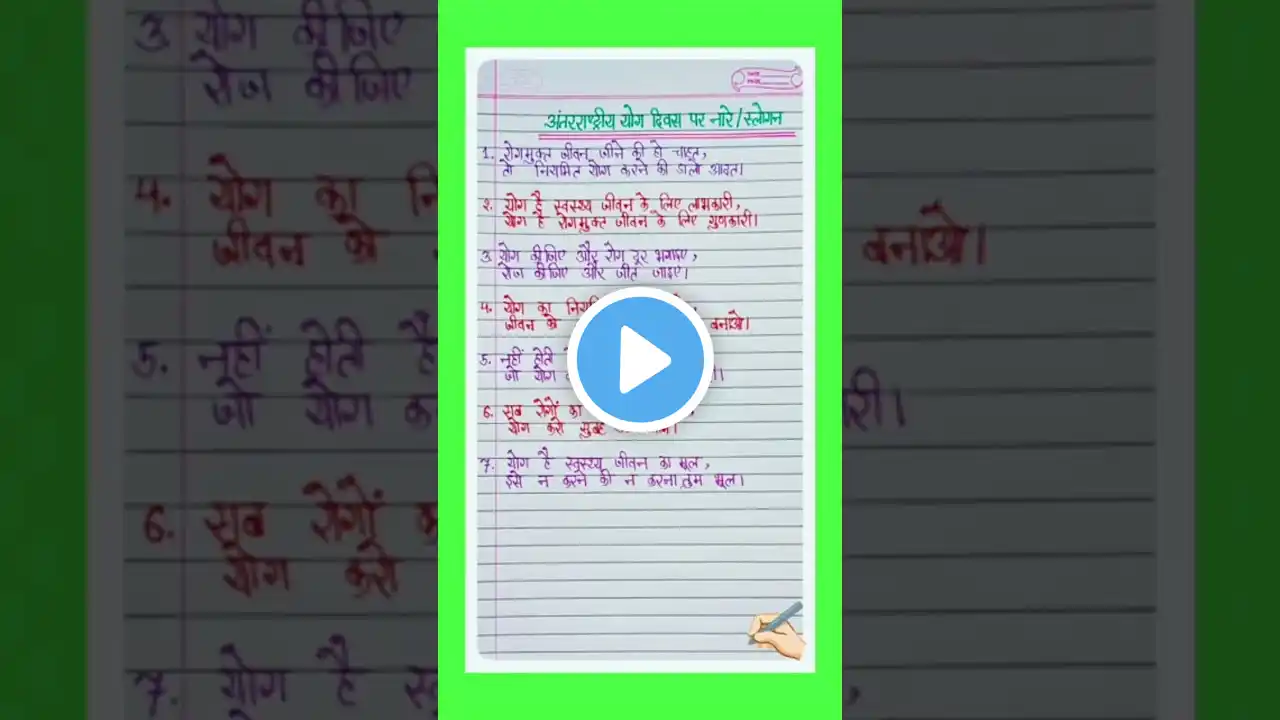 अंतरराष्ट्रीय योग दिवस पर नारे/स्लोगन
1. रोगमुक्त जीवन जीने की हो चाहत,
तो नियमित योग करने की डालो आदत।
2. योग है स्वस्थ्य जीवन के लिए लाभकारी,
योग है रोगमुक्त जीवन के लिए गुणकारी।
3. योग कीजिए और रोग दूर भगाइए,
रोज कीजिए और जीत जाइए।
4. योग का
जीवन को बनाओ।
5. नहीं होती
जो योग
6. सब रोगों का
योग करो सुबह
7. योग है स्वस्थ्य जीवन का मूल,
इसे न करने की न करना तुम भूल।